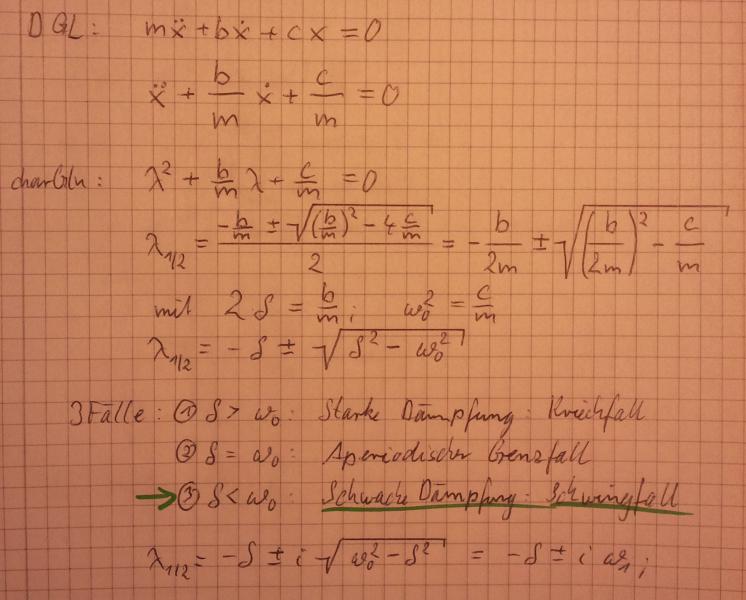 DGL: mẍ + bẋ + cx = 0
ẍ + b/m ẋ + c/m = 0
charGln: λ² + b/m λ + c/m = 0
λ₁/₂ = (-b/m ± √((b/m)² - 4 c/m)) / 2 = - b/2m ± √((b/2m)² - c/m)
mit 2δ = b/m; ω₀² = c/m
λ₁/₂ = - δ ± √(δ² - ω₀²)
3 Fälle: ① δ > ω₀: Starke Dämpfung: Kriechfall
② δ = ω₀: Aperiodischer Grenzfall
→ ③ δ < ω₀: Schwache Dämpfung: Schwingfall
λ₁/₂ = -δ ± i √(ω₀² - δ²) = -δ ± i ω₁;